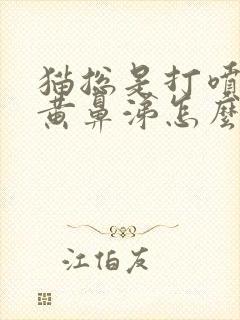 猫总是打喷
黄鼻涕怎麼
江伯友